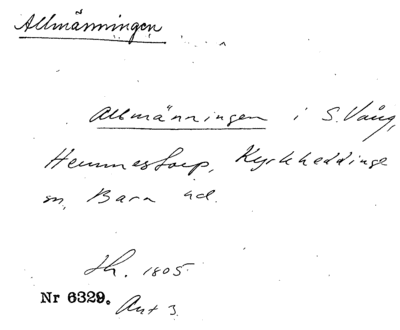 Allmänningen
Allmänningen i S. Vång,
Hemmestorp, Kyrkheddinge
sn, Bara hd.
Sk. 1805
Nr 6329. Akt 3.